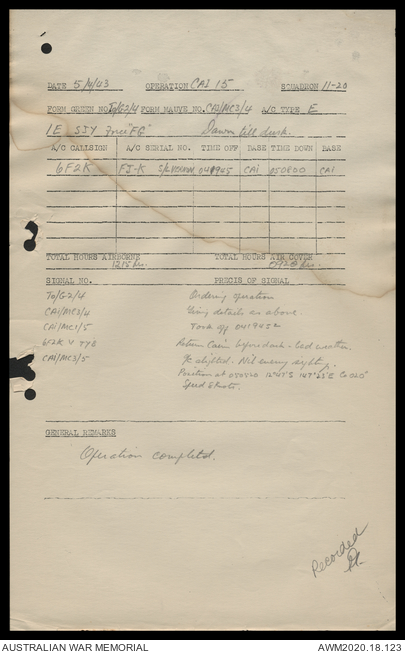 DATE 5/4/43 OPERATION CAI 15 SQUADRON 11-20
FORM GREEN NO. To/G2/4 FORM MAUVE NO. CAI/MC3/4 A/C TYPE E
1E SIY Force "FG" Dawn till dusk.
A/C CALLSIGN A/C SERIAL NO. TIME OFF BASE TIME DOWN BASE
6F2K FJ-K S/L 041945 CAI 050800 CAI
TOTAL HOURS AIRBORNE TOTAL HOURS AIR COVER
12/15 hrs. hrs.
SIGNAL NO. PRECIS OF SIGNAL
To/G2/4 Ordering operation
CAI/MC3/4 Giving details as above.
CAI/MC1/5 Took off 041945Z
6F2K V 7YB Return Cairns before dark - bad weather.
CAI/MC3/5 A/c alighted. Nil enemy sighting.
Position at 050520 147° Co 020°
Speed 8 knots.
GENERAL REMARKS
Operation completed.
Recorded
AUSTRALIAN WAR MEMORIAL AWM2020.18.123